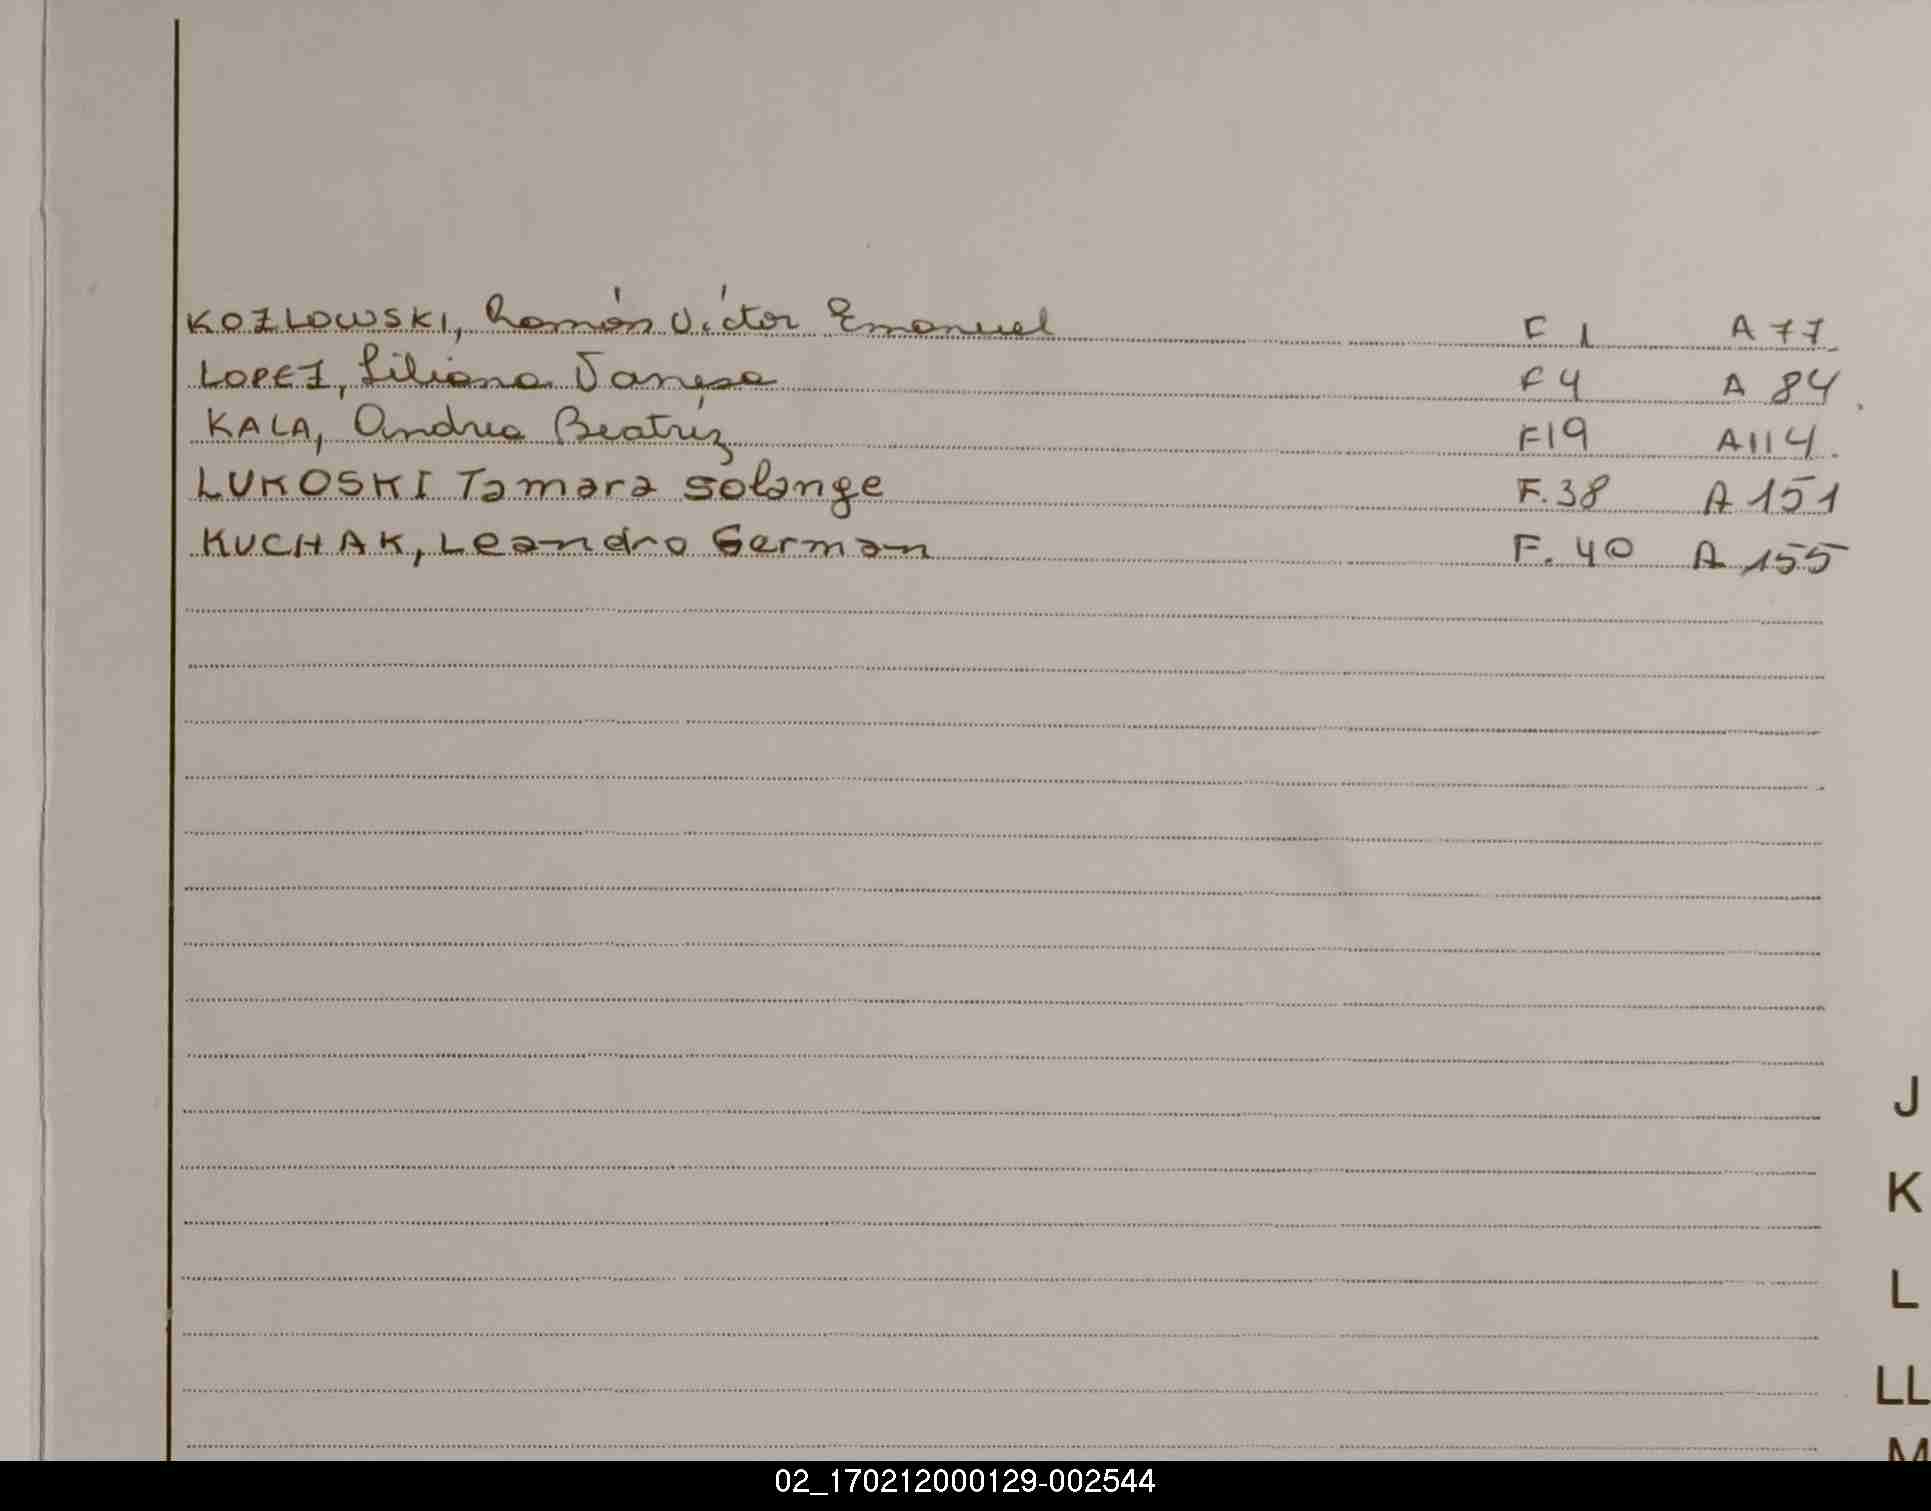 KOZLOWSKI, Ramón Víctor Emanuel F 1 A 77
LOPEZ, Liliana Vanesa F 4 A 84.
KALA, Andrea Beatríz F19 A114.
LUKOSKI Tamara Solange F. 38 A 151
KUCHAK, Leandro German F. 40 A 155
J
K
L
LL
M
02_170212000129-002544